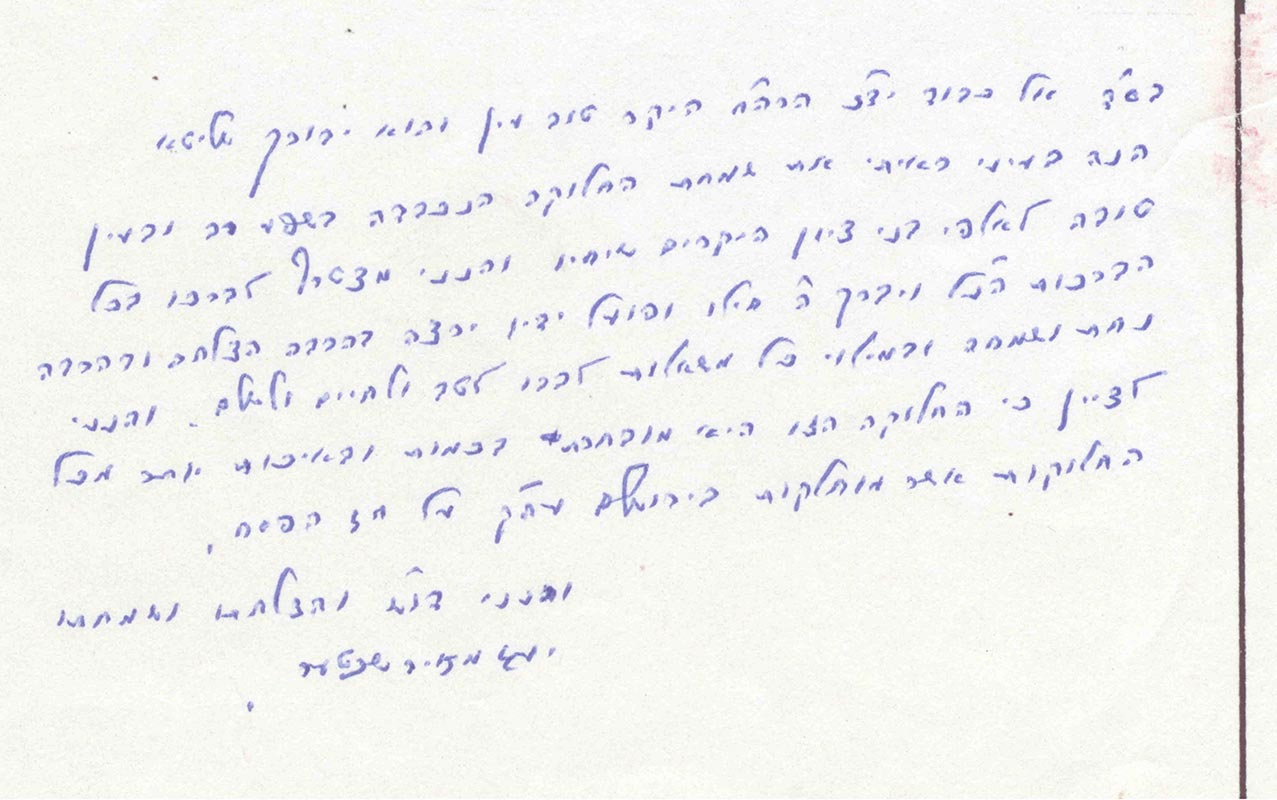 בס"ד אל כבוד ידי"נ הרה"ח היקר טוב עין והוא יבורך שליט"א
הנה בעיני ראיתי את שמחת החלוקה הנכבדה בשפע רב ובעין
טובה לאלפי בני ציון היקרים שיחיו והנני מצטרף לברכו בכל
הברכות הנ"ל ויברך ה' חילו ופועל ידיו ירצה בהרבה הצלחה ובהרבה
נחת ושמחה ובמילוי כל משאלות לבבו לטב ולחיים ולשלם. והנני
לציין כי החלוקה הזו היא מובחרת בכמות ובאיכות יותר מכל
החלוקות אשר מוחלקות בירושלם עיה"ק על חג הפסח.
והנני דו"ש והצלחתו ושמחתו
יעקב מאיר שכטער